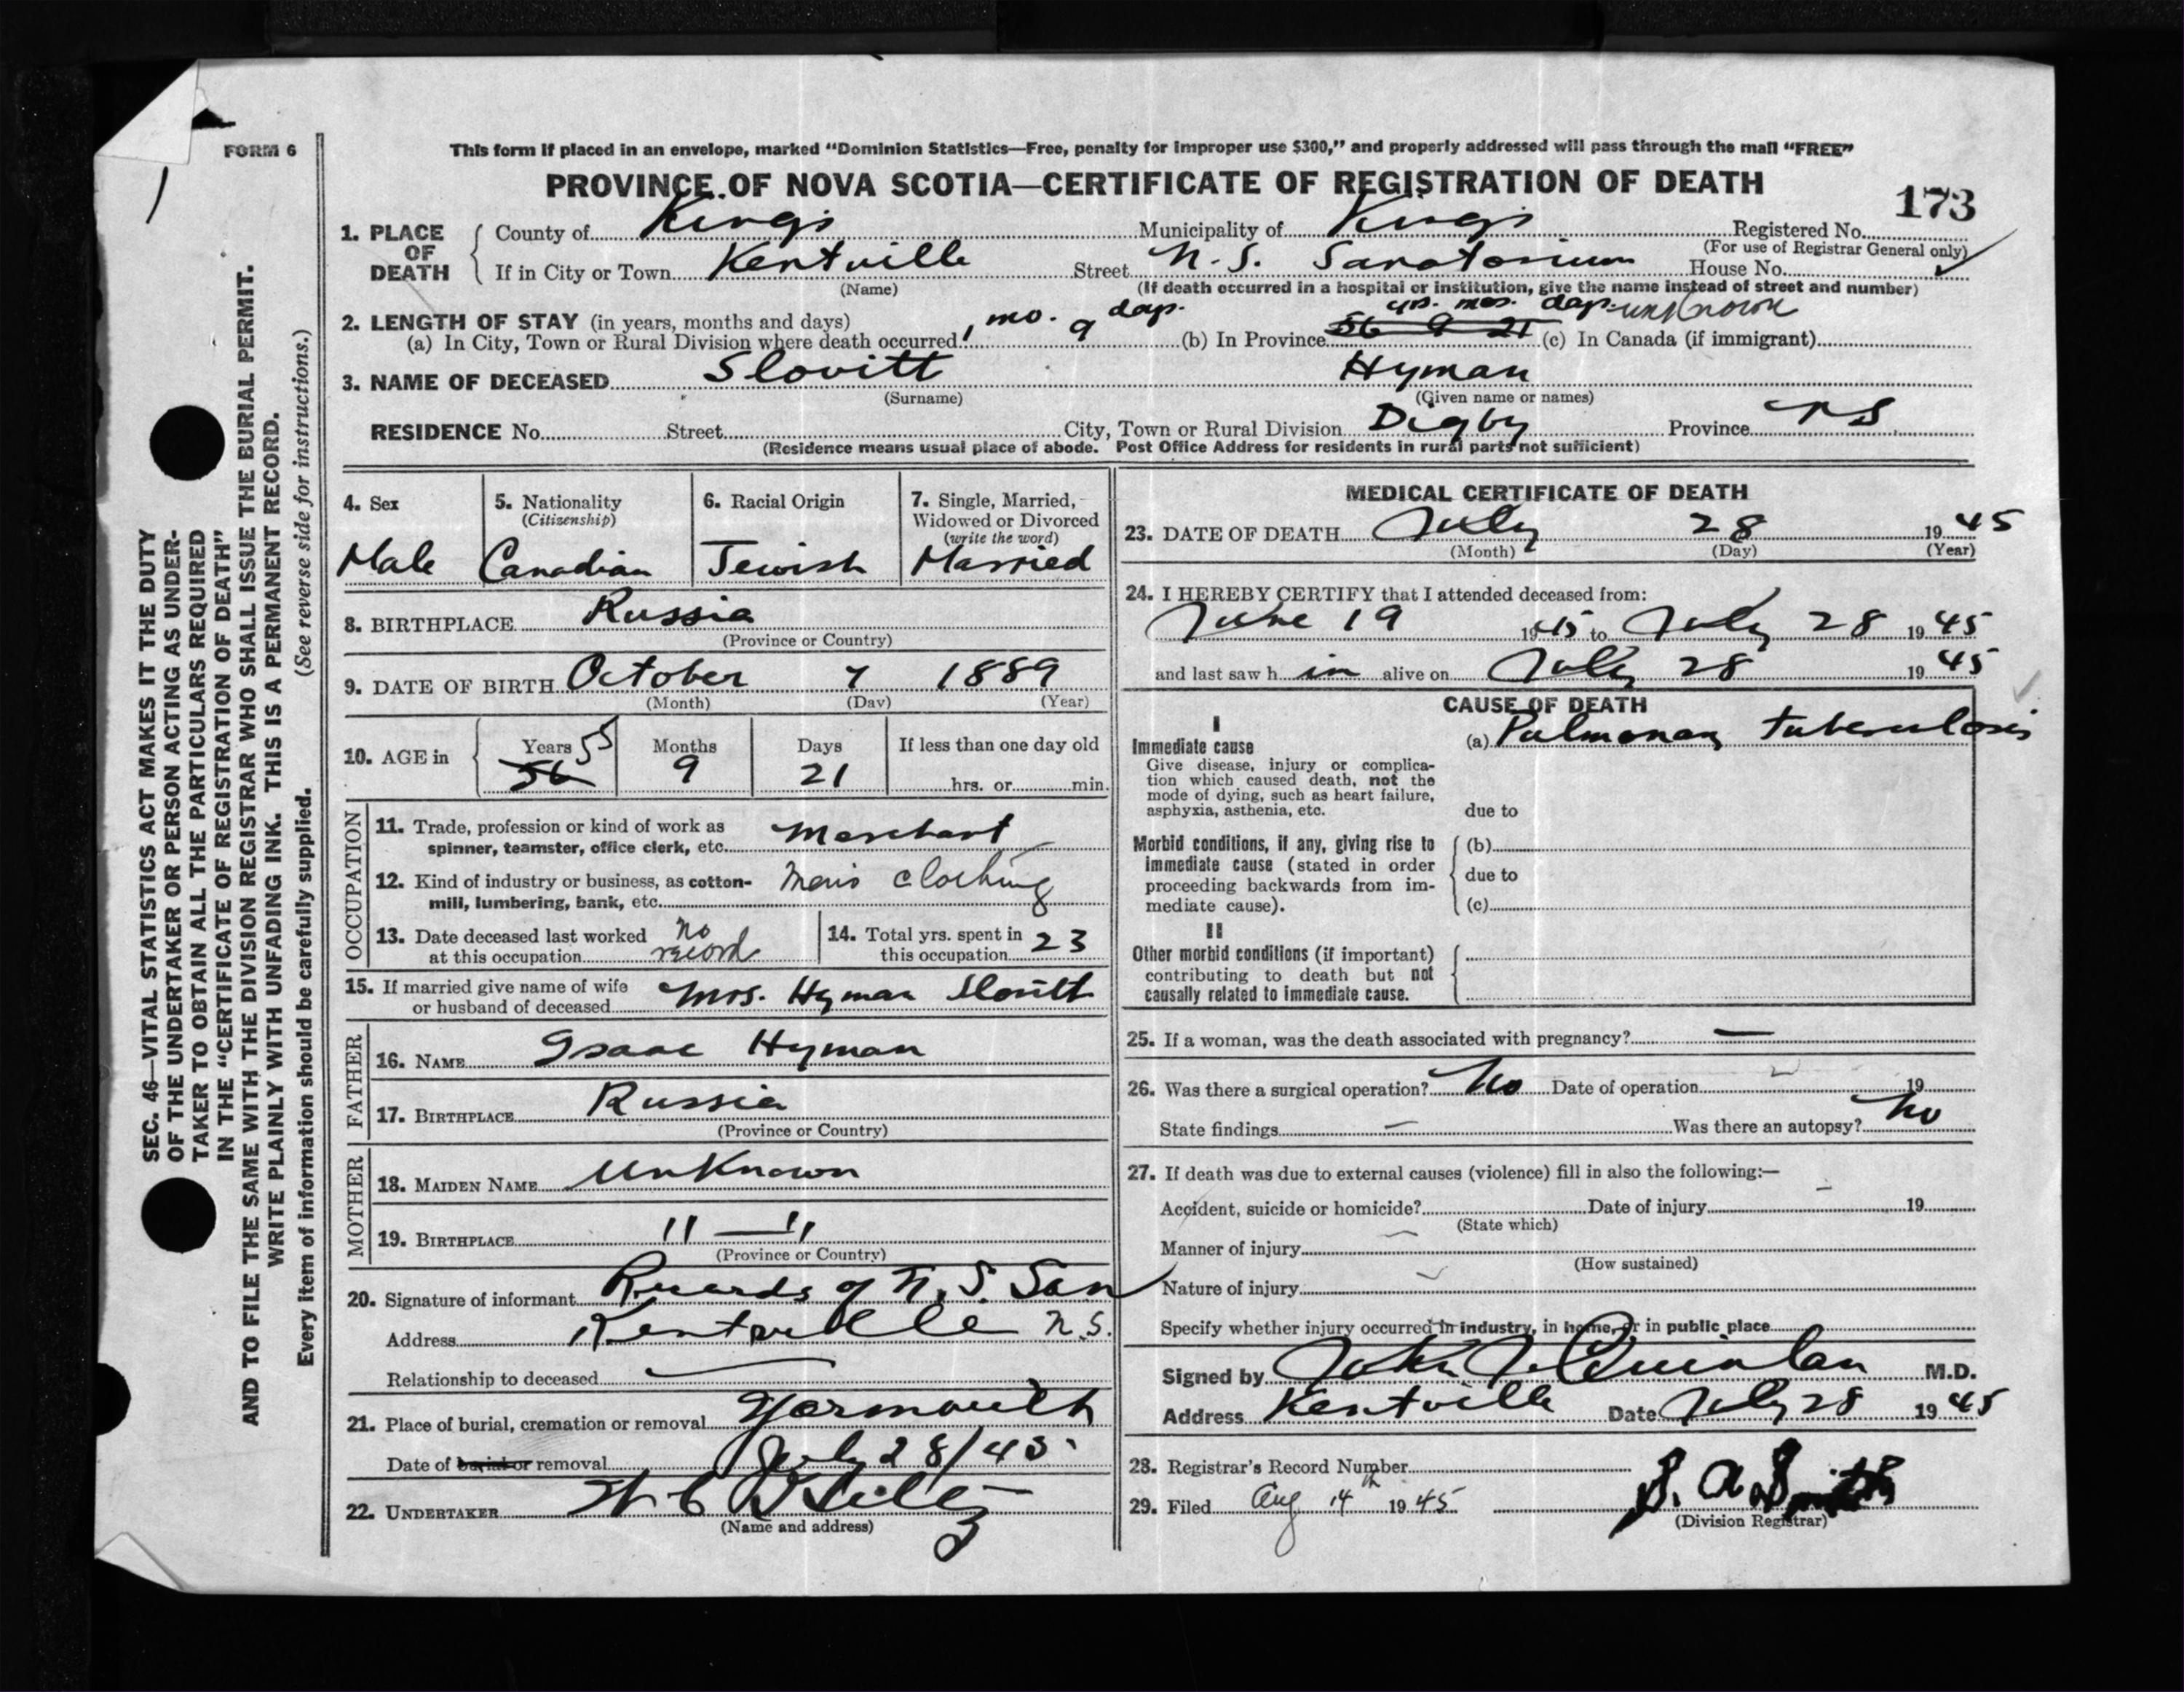 FORM 6
This form if placed in an envelope, marked “Dominion Statistics—Free, penalty for improper use $300,” and properly addressed will pass through the mail “FREE”
PROVINCE OF NOVA SCOTIA—CERTIFICATE OF REGISTRATION OF DEATH
173
1. PLACE OF DEATH
County of Kings Municipality of Kings Registered No.
(For use of Registrar General only)
If in City or Town Kentville Street N. S. Sanatorium House No.
(Name) (If death occurred in a hospital or institution, give the name instead of street and number)
2. LENGTH OF STAY (in years, months and days)
(a) In City, Town or Rural Division where death occurred 1 mo. 9 days. (b) In Province 56 9 21 yrs. mos. days. unknown (c) In Canada (if immigrant)
3. NAME OF DECEASED Slovitt Hyman
(Surname) (Given name or names)
RESIDENCE No. Street City, Town or Rural Division Digby Province NS
(Residence means usual place of abode. Post Office Address for residents in rural parts not sufficient)
4. Sex
Male
5. Nationality
(Citizenship)
Canadian
6. Racial Origin
Jewish
7. Single, Married,
Widowed or Divorced
(write the word)
Married
8. BIRTHPLACE Russia
(Province or Country)
9. DATE OF BIRTH October 7 1889
(Month) (Day) (Year)
10. AGE in Years 56 55 Months 9 Days 21 If less than one day old
hrs. or min.
OCCUPATION
11. Trade, profession or kind of work as
spinner, teamster, office clerk, etc. Merchant
12. Kind of industry or business, as cotton-
mill, lumbering, bank, etc. Mens clothing
13. Date deceased last worked
at this occupation no record
14. Total yrs. spent in
this occupation 23
15. If married give name of wife
or husband of deceased Mrs. Hyman Slovitt
FATHER
16. NAME Isaac Hyman
17. BIRTHPLACE Russia
(Province or Country)
MOTHER
18. MAIDEN NAME Unknown
19. BIRTHPLACE " — "
(Province or Country)
20. Signature of informant Records of N. S. San
Address Kentville N.S.
Relationship to deceased
21. Place of burial, cremation or removal Yarmouth
Date of burial or removal July 28/45
22. UNDERTAKER
(Name and address)
MEDICAL CERTIFICATE OF DEATH
23. DATE OF DEATH July 28 1945
(Month) (Day) (Year)
24. I HEREBY CERTIFY that I attended deceased from:
June 19 1945 to July 28 1945
and last saw h im alive on July 28 1945
CAUSE OF DEATH
I
Immediate cause
Give disease, injury or complica-
tion which caused death, not the
mode of dying, such as heart failure,
asphyxia, asthenia, etc.
(a) Pulmonary tuberculosis
due to
Morbid conditions, if any, giving rise to
immediate cause (stated in order
proceeding backwards from im-
mediate cause).
(b)
due to
(c)
II
Other morbid conditions (if important)
contributing to death but not
causally related to immediate cause.
25. If a woman, was the death associated with pregnancy? —
26. Was there a surgical operation? No Date of operation 19
State findings — Was there an autopsy? No
27. If death was due to external causes (violence) fill in also the following:—
Accident, suicide or homicide? Date of injury 19
(State which)
Manner of injury
(How sustained)
Nature of injury
Specify whether injury occurred in industry, in home, or in public place
Signed by John J Quinlan M.D.
Address Kentville Date July 28 1945
28. Registrar's Record Number
29. Filed Aug 14th 1945 S. A. Smith
(Division Registrar)
SEC. 46—VITAL STATISTICS ACT MAKES IT THE DUTY
OF THE UNDERTAKER OR PERSON ACTING AS UNDER-
TAKER TO OBTAIN ALL THE PARTICULARS REQUIRED
IN THE “CERTIFICATE OF REGISTRATION OF DEATH”
AND TO FILE THE SAME WITH THE DIVISION REGISTRAR WHO SHALL ISSUE THE BURIAL PERMIT.
WRITE PLAINLY WITH UNFADING INK. THIS IS A PERMANENT RECORD.
Every item of information should be carefully supplied. (See reverse side for instructions.)